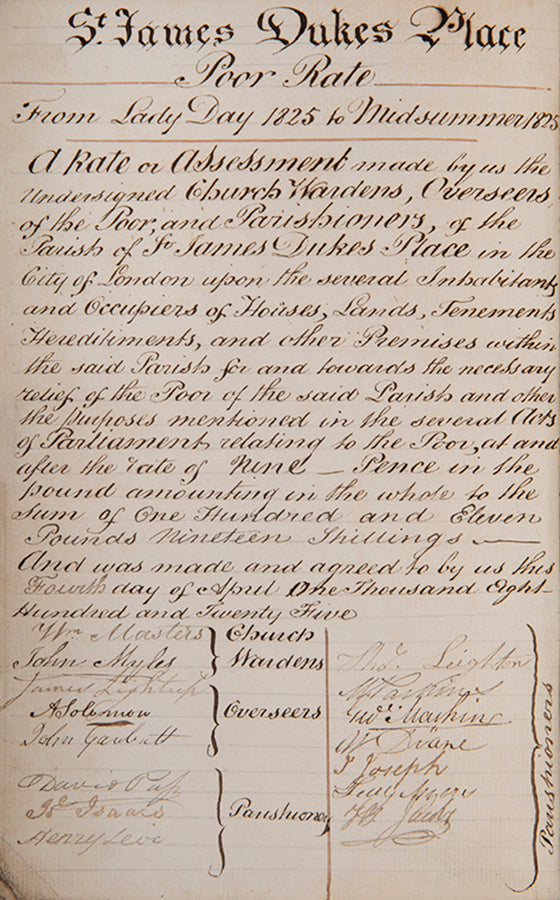 St. James Dukes Place
Poor Rate
From Lady Day 1825 to Midsummer 1825
A Rate or Assessment made by us the
Undersigned Church Wardens, Overseers
of the Poor, and Parishioners, of the
Parish of St. James Dukes Place in the
City of London upon the several Inhabitants
and Occupiers of Houses, Lands, Tenements
Hereditiments, and other Premises within
the said Parish for and towards the necessary
relief of the Poor of the said Parish and other
the Purposes mentioned in the several Acts
of Parliament relating to the Poor, at and
after the rate of Nine — Pence in the
pound amounting in the whole to the
Sum of One Hundred and Eleven
Pounds Nineteen Shillings —
And was made and agreed to by us this
Fourth day of April One Thousand Eight
Hundred and Twenty Five
Wm Masters
John Myles
Church
Wardens
James
A Solomon
John Garbutt
Overseers
David
Isaacs
Henry Levi
Parishioners
Thos. Leighton
Machin
Wm
J Joseph
Myers
Jacobs
Parishioners